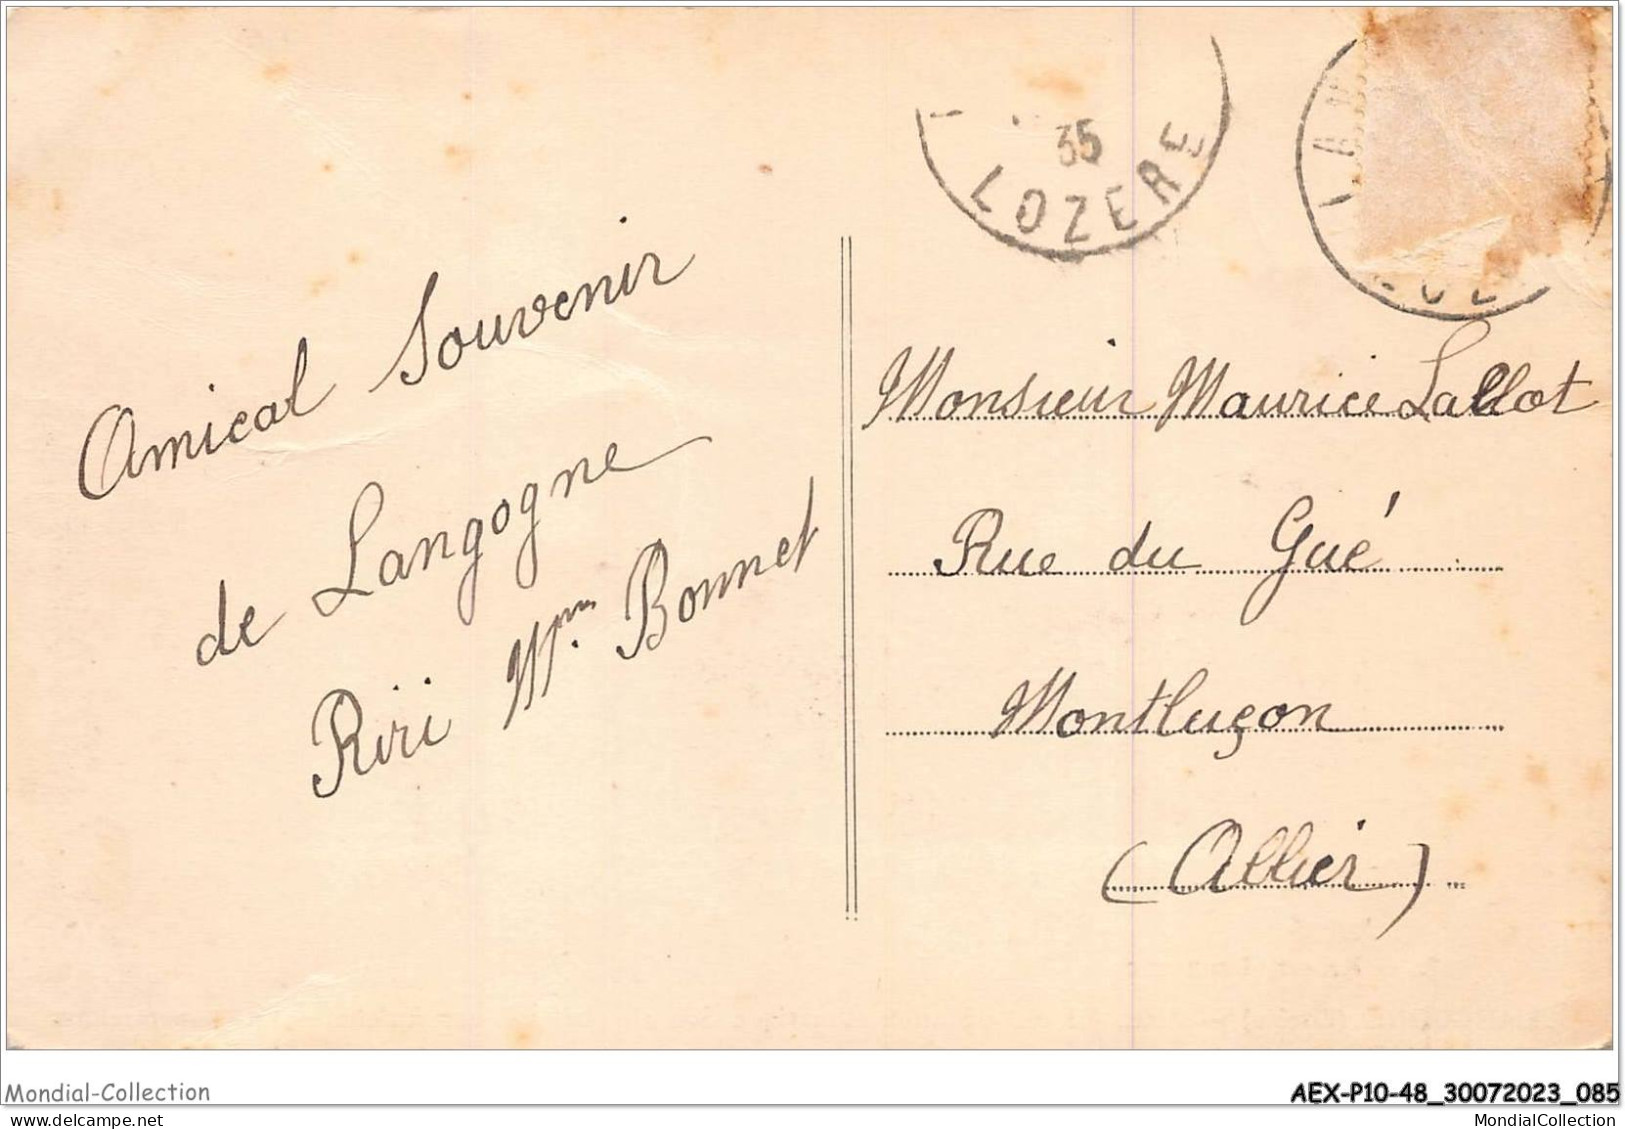 35
LOZERE
Amical Souvenir
de Langogne
Riri Bonnet
Monsieur Maurice Lallot
Rue du Gué
Montluçon
(Allier)
Mondial-Collection
AEX-P10-48_30072023_085
MondialCollection